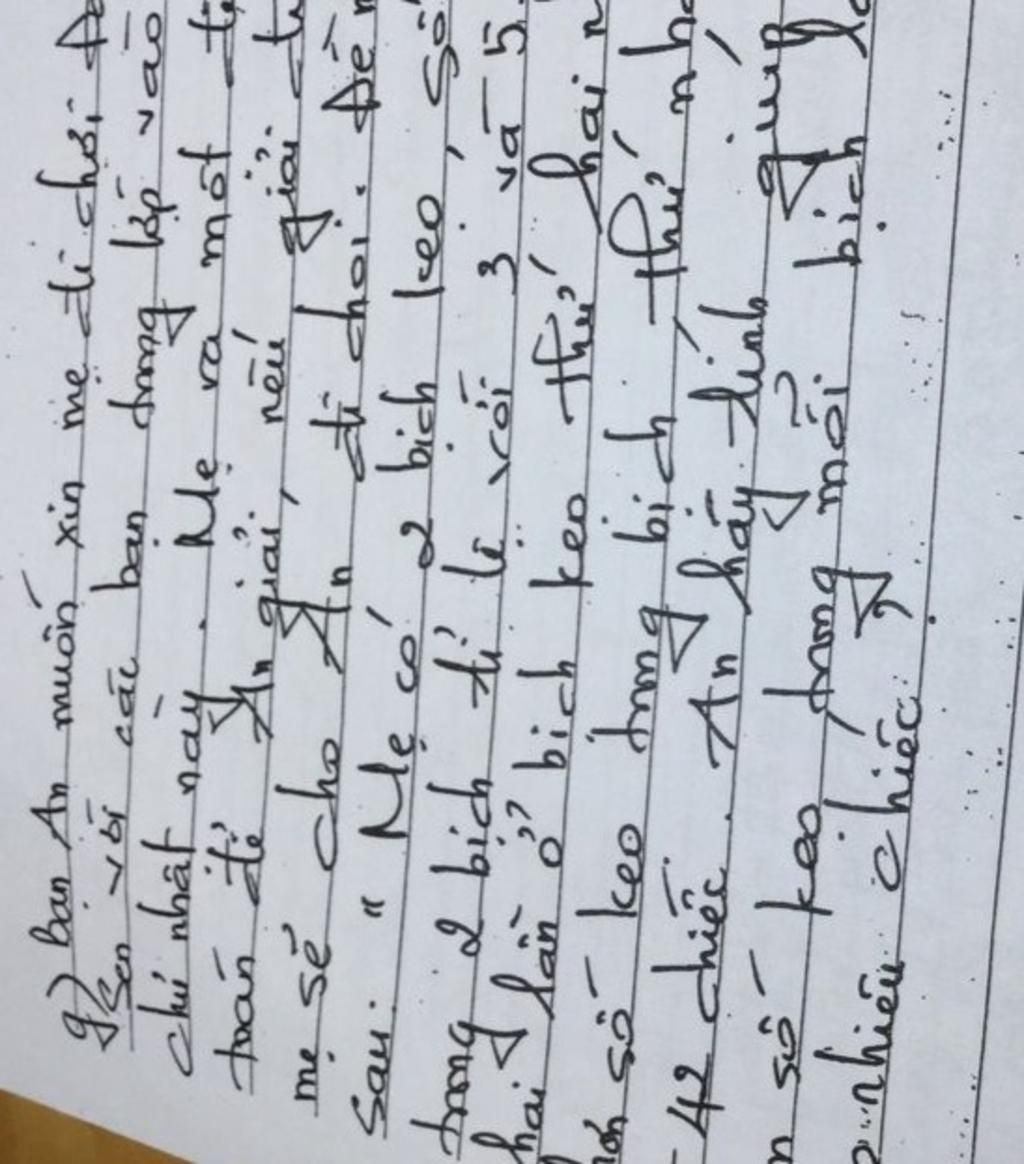 g) bạn An muốn xin mẹ đi chơi
Sen với các bạn trong lớp vào
chủ nhật này. Mẹ ra một
toán để An giải, nếu giải
mẹ sẽ cho An đi chơi. Đề
sau: " Mẹ có 2 bịch kẹo, số
trong 2 bịch tỉ lệ với 3 và 5.
hai lần ở bịch kẹo thứ hai
hơn số kẹo trong bịch thứ
42 chiếc. An hãy tính giúp
số kẹo trong mỗi bịch
nhiêu chiếc?